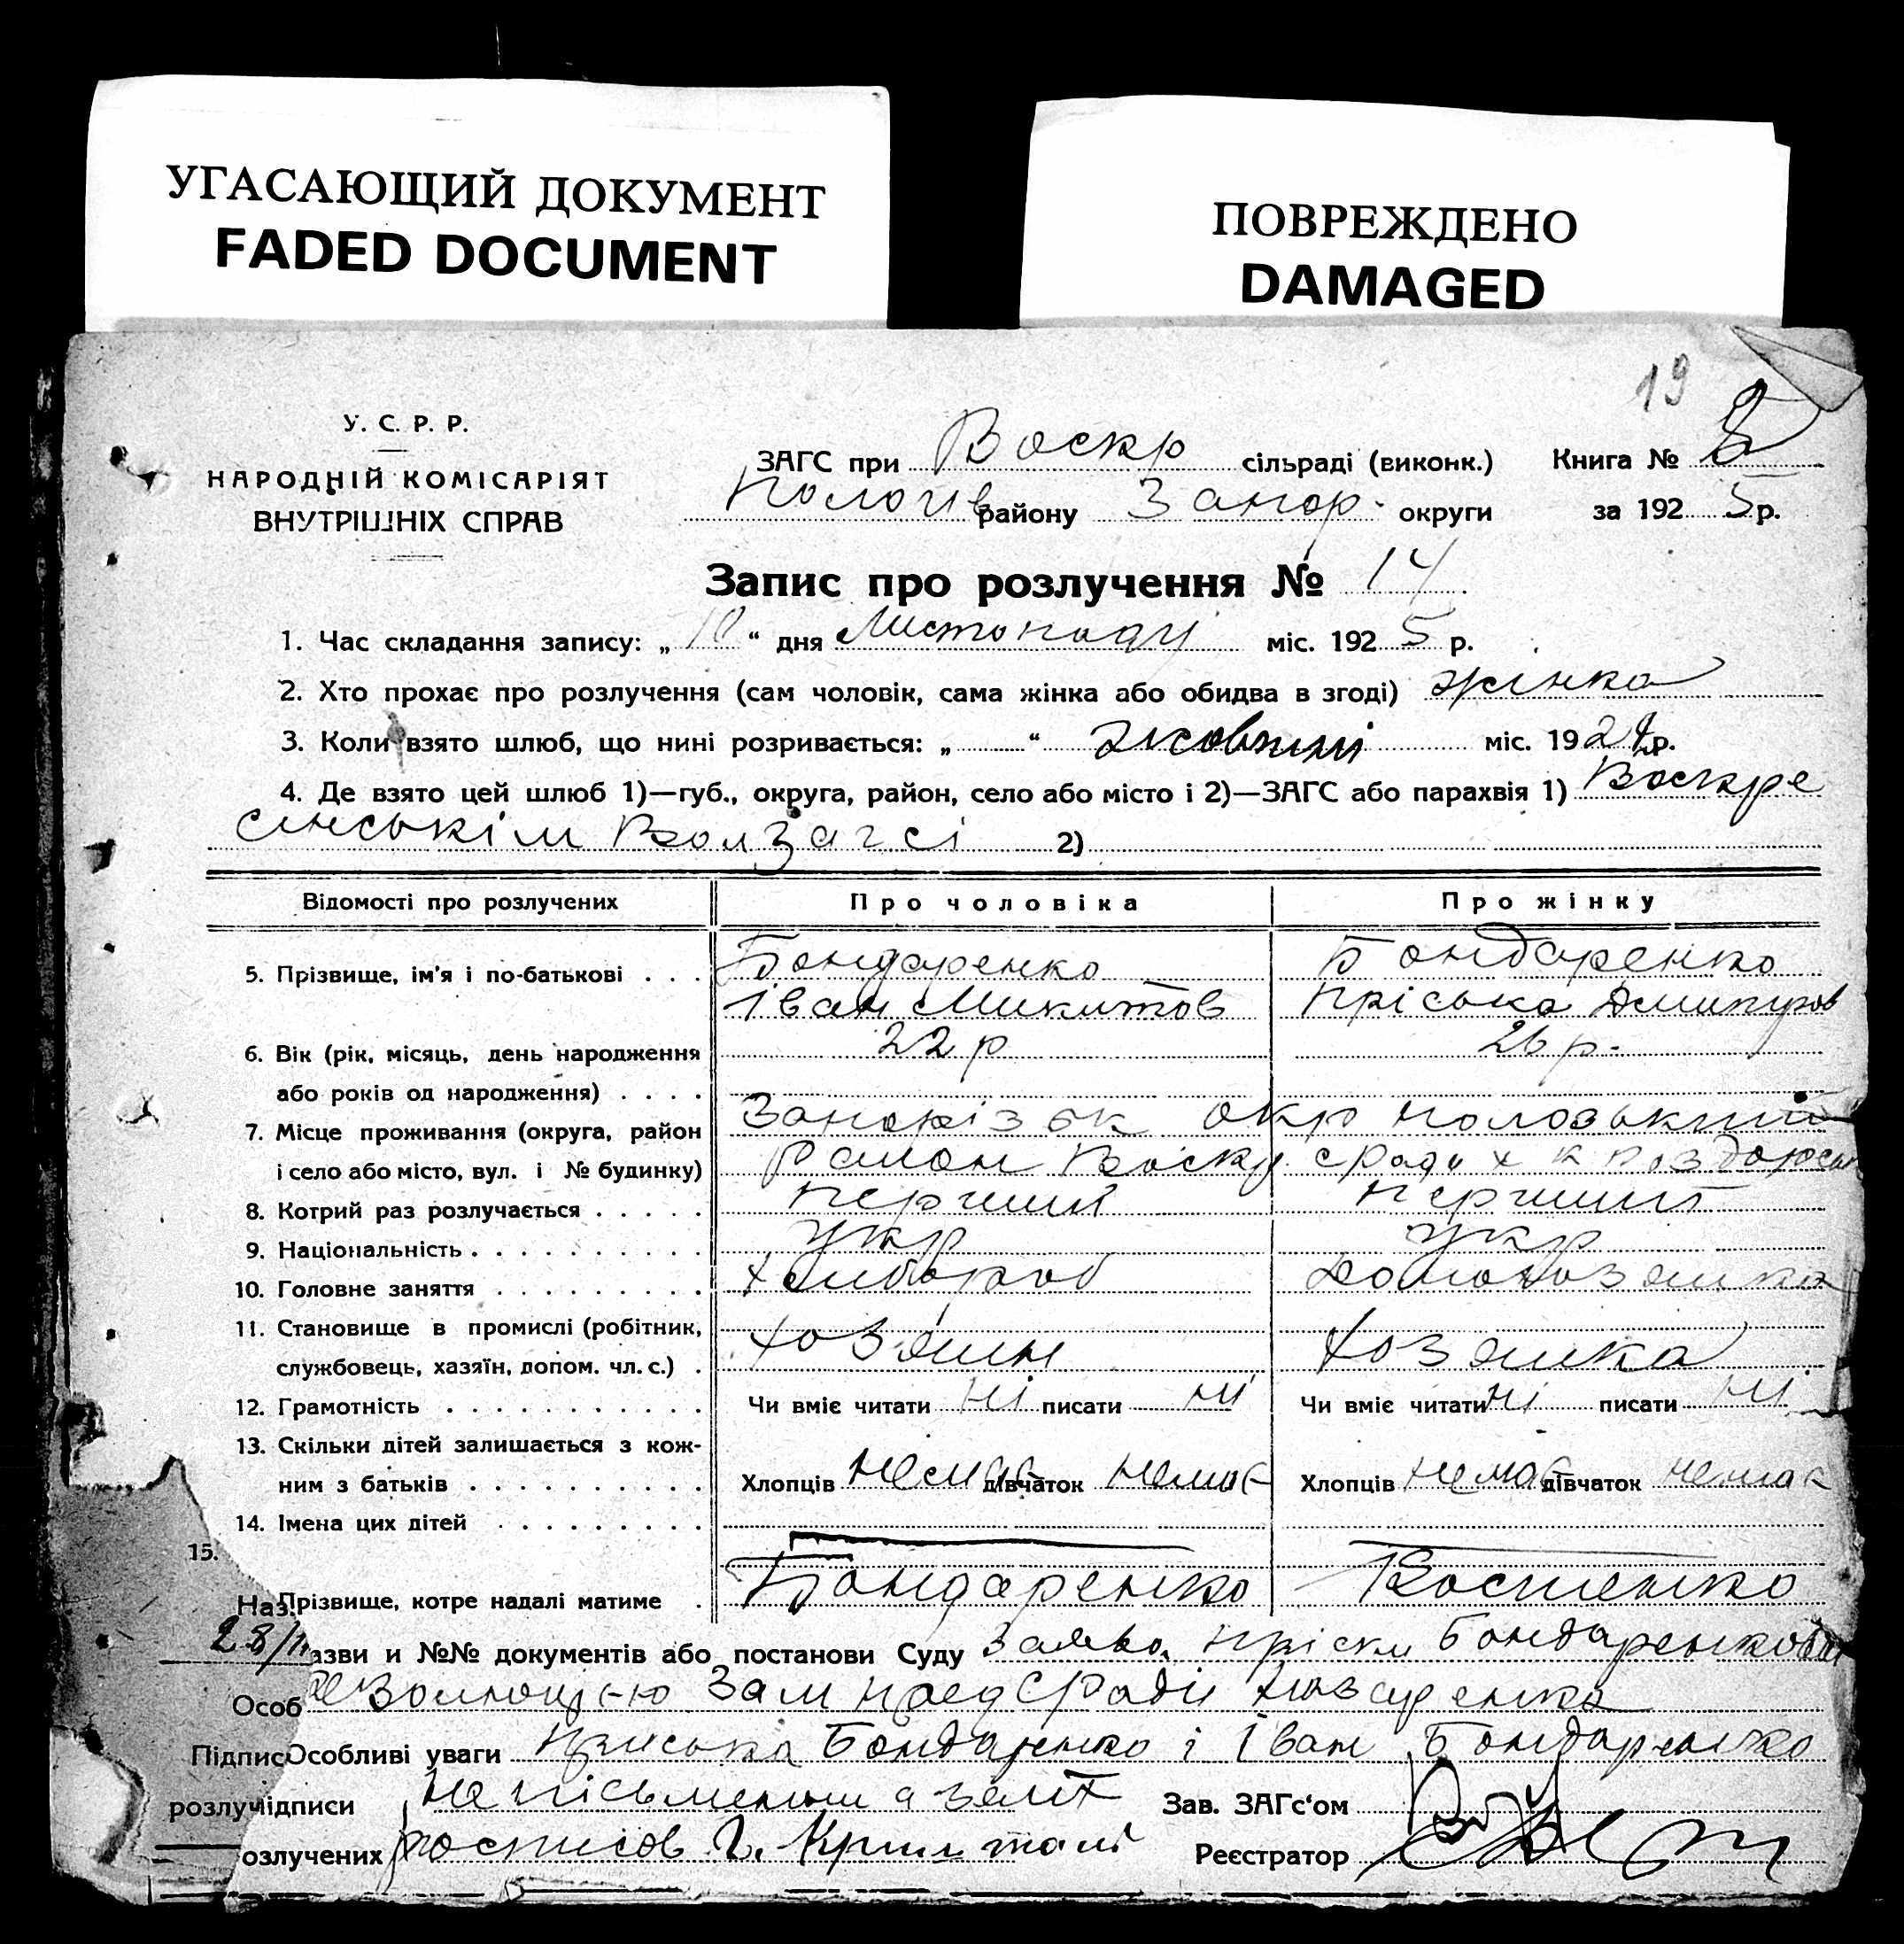 УГАСАЮЩИЙ ДОКУМЕНТ
FADED DOCUMENT
ПОВРЕЖДЕНО
DAMAGED
19
У. С. Р. Р.
НАРОДНІЙ КОМІСАРІЯТ
ВНУТРІШНІХ СПРАВ
ЗАГС при Воскр сільраді (виконк.) Книга №
Пологів району Запор. округи за 1925р.
Запис про розлучення № 14
1. Час складання запису: „10“ дня Листопаду міс. 1925 р.
2. Хто прохає про розлучення (сам чоловік, сама жінка або обидва в згоді) жінка
3. Коли взято шлюб, що нині розривається: „ “ жовтні міс. 192 р.
4. Де взято цей шлюб 1)—губ., округа, район, село або місто і 2)—ЗАГС або парахвія 1) Воскре
сінськім Волзагсі 2)
Відомості про розлучених Про чоловіка Про жінку
5. Прізвище, ім'я і по-батькові . . . Бондаренко Бондаренко
Іван Микитов Пріська Дмитров
6. Вік (рік, місяць, день народження 22 р 26 р.
або років од народження) . . . .
7. Місце проживання (округа, район Запорізьк окр Пологський
і село або місто, вул. і № будинку) Район Воскр
8. Котрий раз розлучається . . . . . перший перший
9. Національність . . . . . . . . . . укр укр
10. Головне заняття . . . . . . . . . хлібороб домохозяйка
11. Становище в промислі (робітник,
службовець, хазяїн, допом. чл. с.) . хозяин хозяйка
12. Грамотність . . . . . . . . . . . Чи вміє читати ні писати ні Чи вміє читати ні писати ні
13. Скільки дітей залишається з кож-
ним з батьків . . . . . . . . . . Хлопців немає дівчаток немає Хлопців немає дівчаток немає
14. Імена цих дітей . . . . . . . .
15.
Наз. Прізвище, котре надалі матиме . Бондаренко Костенко
28/ азви и №№ документів або постанови Суду Заява Пріски Бондаренкової
Особ резолюцією Зам пред Сради
Підпис Особливі уваги Пріська Бондаренко і Іван Бондаренко
розлуч ідписи не письменни а за них
озлучених росписов Г. Зав. ЗАГс'ом
Реєстратор